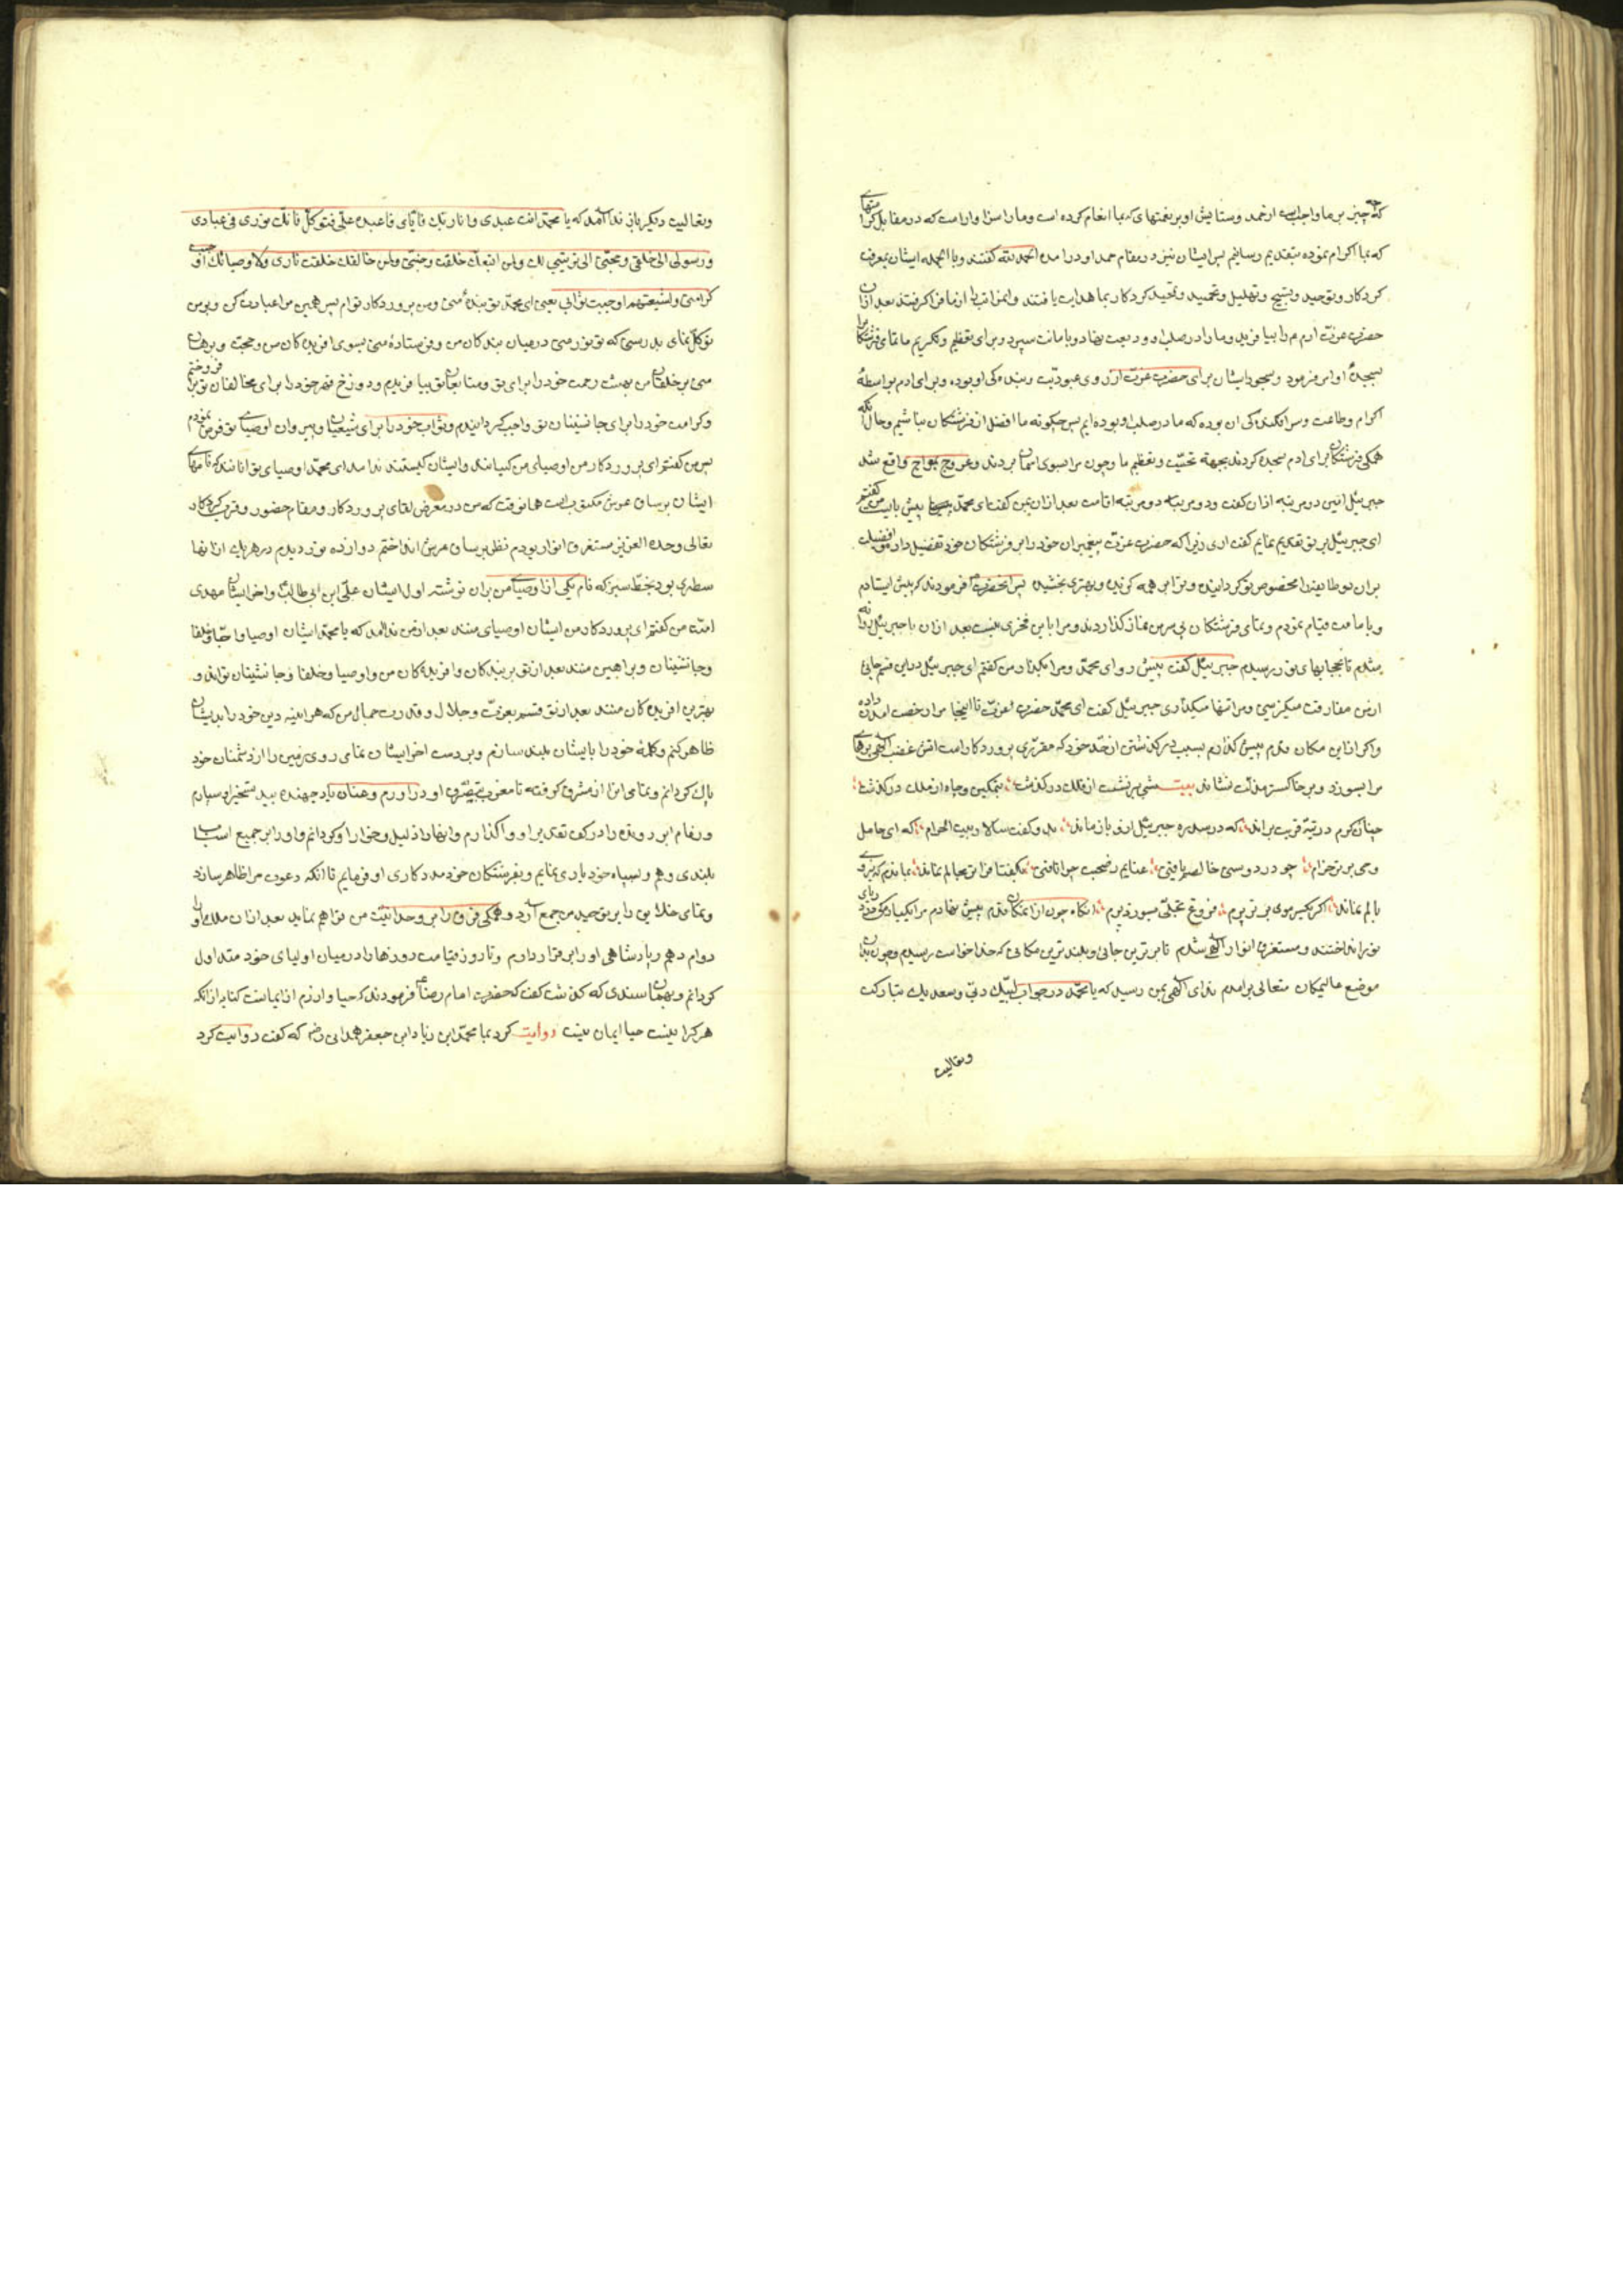 که چه چیز بر ما واجبست از حمد و ستایش او بر نعمتهای که بما انعام کرده است و ما را سزاوار است که در مقابل کرامتهای
که بما اکرام نموده بتقدیم رسانیم پس ایشان نیز در مقام حمد او درآمده الحمد لله گفتند و بالجمله ایشان بمعرفت
کردکار و توحید و تسبیح و تهلیل و تحمید و تمجید کردکار بما هدایت یافتند و این مراتب را از ما فرا گرفتند بعد ازان
حضرت عزت آدم را بیافرید و ما را در صلب او ودیعت نهاد و بامانت سپرد و برای تعظیم و تکریم ما تمامی فرشتکان را
بسجدهٔ او امر فرمود و سجود ایشان برای حضرت عزت از روی عبودیت و بندکی او بوده و برای آدم بواسطهٔ
اکرام و طاعت و سرافکندکی آن بوده که ما در صلب او بوده ایم پس چکونه ما افضل از فرشتکان نباشیم و حال آنکه
همکی فرشتکان برای آدم سجده کردند بجهة تحیت و تعظیم ما و چون مرا بسوی آسمان بردند و عروج بمعراج واقع شد
جبرئیل امین دو مرتبه اذان گفت و دو مرتبه دو مرتبه اقامت بعد ازان بمن گفت ای محمد پیش بایست من گفتم
ای جبرئیل بر تو تقدیم نمایم گفت اری زیرا که حضرت عزت پیغمبران خود را بر فرشتکان خود تفضیل داده و افضلیت
بران طایفه را مخصوص تو کردانیده و ترا بر همه کزیده و بهتری بخشیده پس آنحضرت فرمودند که پیش ایستادم
و بامامت قیام نمودم و تمامی فرشتکان بر سر من نماز گذاردند و مرا باین فخری نیست بعد ازان با جبرئیل روانه
شدم تا بحجابهای نور رسیدم جبرئیل گفت پیش رو ای محمد و مرا بگذار من گفتم ای جبرئیل در این قسم جایی
از من مفارقت میگزینی و مرا تنها میگذاری جبرئیل گفت ای محمد حضرت عزت تا اینجا مرا رخصت آمدن داده
و اکر ازین مکان قدم پیش گذارم بسبب درگذشتن از حد خود که مقرری پروردکار است آتش غضب الهی پرهای
مرا بسوزد و بر خاکستر مذلت نشاند بیت شبی بر نشست از فلک در گذشت بتمکین و جاه از ملک در گذشت
چنان گرم در تیه قربت براند که در سدره جبرئیل ازو باز ماند بدو گفت سالار بیت الحرام که ای حامل
وحی برتر خرام چو در دوستی خالصم یافتی عنانم ز صحبت چرا تافتی بگفتا فراتر مجالم نماند بماندم که نیروی
بالم نماند اکر یکسر موی برتر پرم فروغ تجلی بسوزد پرم انکاه چون ازانمکان قدم پیش نهادم مرا بیکبار در دریای
نور انداختند و مستغرق انوار الهی شدم تا برترین جائی و بلندترین مکانی که خدا خواست رسیدم و چون بدان
موضع عالیمکان متعالی برآمدم ندای الهی بمن رسید که یا محمد در جواب لبیک ربی و سعدیک تبارکت
وتعالیت
وتعالیت دیگر باز ندا آمد که یا محمد انت عبدی وانا ربک فایای فاعبد وعلی فتوکل فانک نوری فی عبادی
ورسولی الی خلقی وحجتی الی بریتی لک ولمن اتبعک خلقت جنتی ولمن خالفک خلقت ناری ولاوصیائک اوجبت
کرامتی ولشیعتهم اوجبت ثوابی یعنی ای محمد تو بندهٔ منی و من پروردکار توام پس همین مرا عبادت کن و بر من
توکل نمای بدرستی که تو نور منی در میان بندکان من و فرستادهٔ منی بسوی آفریدکان من و حجت و برهان
منی بر خلقان من بهشت رحمت خود را برای تو و متابعان تو بیافریدم و دوزخ قهر خود را برای مخالفان تو برافروختم
و کرامت خود را برای جانشینان تو واجب کردانیدم و ثواب خود را برای شیعیان و پیروان اوصیای تو فرض نمودم
پس من گفتم ای پروردکار من اوصیای من کیانند و ایشان کیستند ندا آمد ای محمد اوصیای تو آنانند که نامهای
ایشان بر ساق عرش مکتوبست همانوقت که من در معرض لقای پروردکار و مقام حضور و قرب کردکار
تعالی وحده العزیز مستغرق انوار بودم نظر بر ساق عرش انداختم دوازده نور دیدم در هر یک ازانها
سطری بود بخط سبز که نام یکی از اوصیای من بران نوشته اول ایشان علی ابن ابی طالب و آخر ایشان مهدی
امت من گفتم ای پروردکار من ایشان اوصیای منند بعد از من ندا آمد که یا محمد ایشان اوصیا و احبا و خلفا
و جانشینان و براهین منند بعد از تو بر بندکان و آفریدکان من و اوصیا و خلفا و جانشینان تواند و
بهترین آفریدکان منند بعد از تو قسم بعزت و جلال و قدرت جمال من که هرآینه دین خود را بدیشان
ظاهر کنم و کلمهٔ خود را بایشان بلند سازم و بر دست آخر ایشان تمامی روی زمین را از دشمنان خود
پاک کردانم و تمامی آنرا از مشرق گرفته تا مغرب بتصرف او درآورم و عنان باد جهنده بید تسخیر او سپارم
و زمام ابر رونده را در کف تقدیر او واگذارم و آنها را ذلیل و خوار او کردانم و او را بر جمیع اسباب
بلندی دهم و بسپاه خود یاری نمایم و بفرشتکان خود مددکاری او فرمایم تا آنکه دعوت مرا ظاهر سازد
و تمامی خلایق را بر توحید من جمع آرد و همکی فرق را بر وحدانیت من فراهم نماید بعد ازان ملک او را
دوام دهم و پادشاهی او را برقرار دارم و تا روز قیامت روزها را در میان اولیای خود متداول
کردانم و بهمان سندی که گذشت گفت که حضرت امام رضا فرمودند که حیا و آزرم از ایمانست کنایه ازانکه
هر کرا نیست حیا ایمان نیست روایت کرد بما محمد ابن زیاد ابن جعفر همدانی رض که گفت روایت کرد